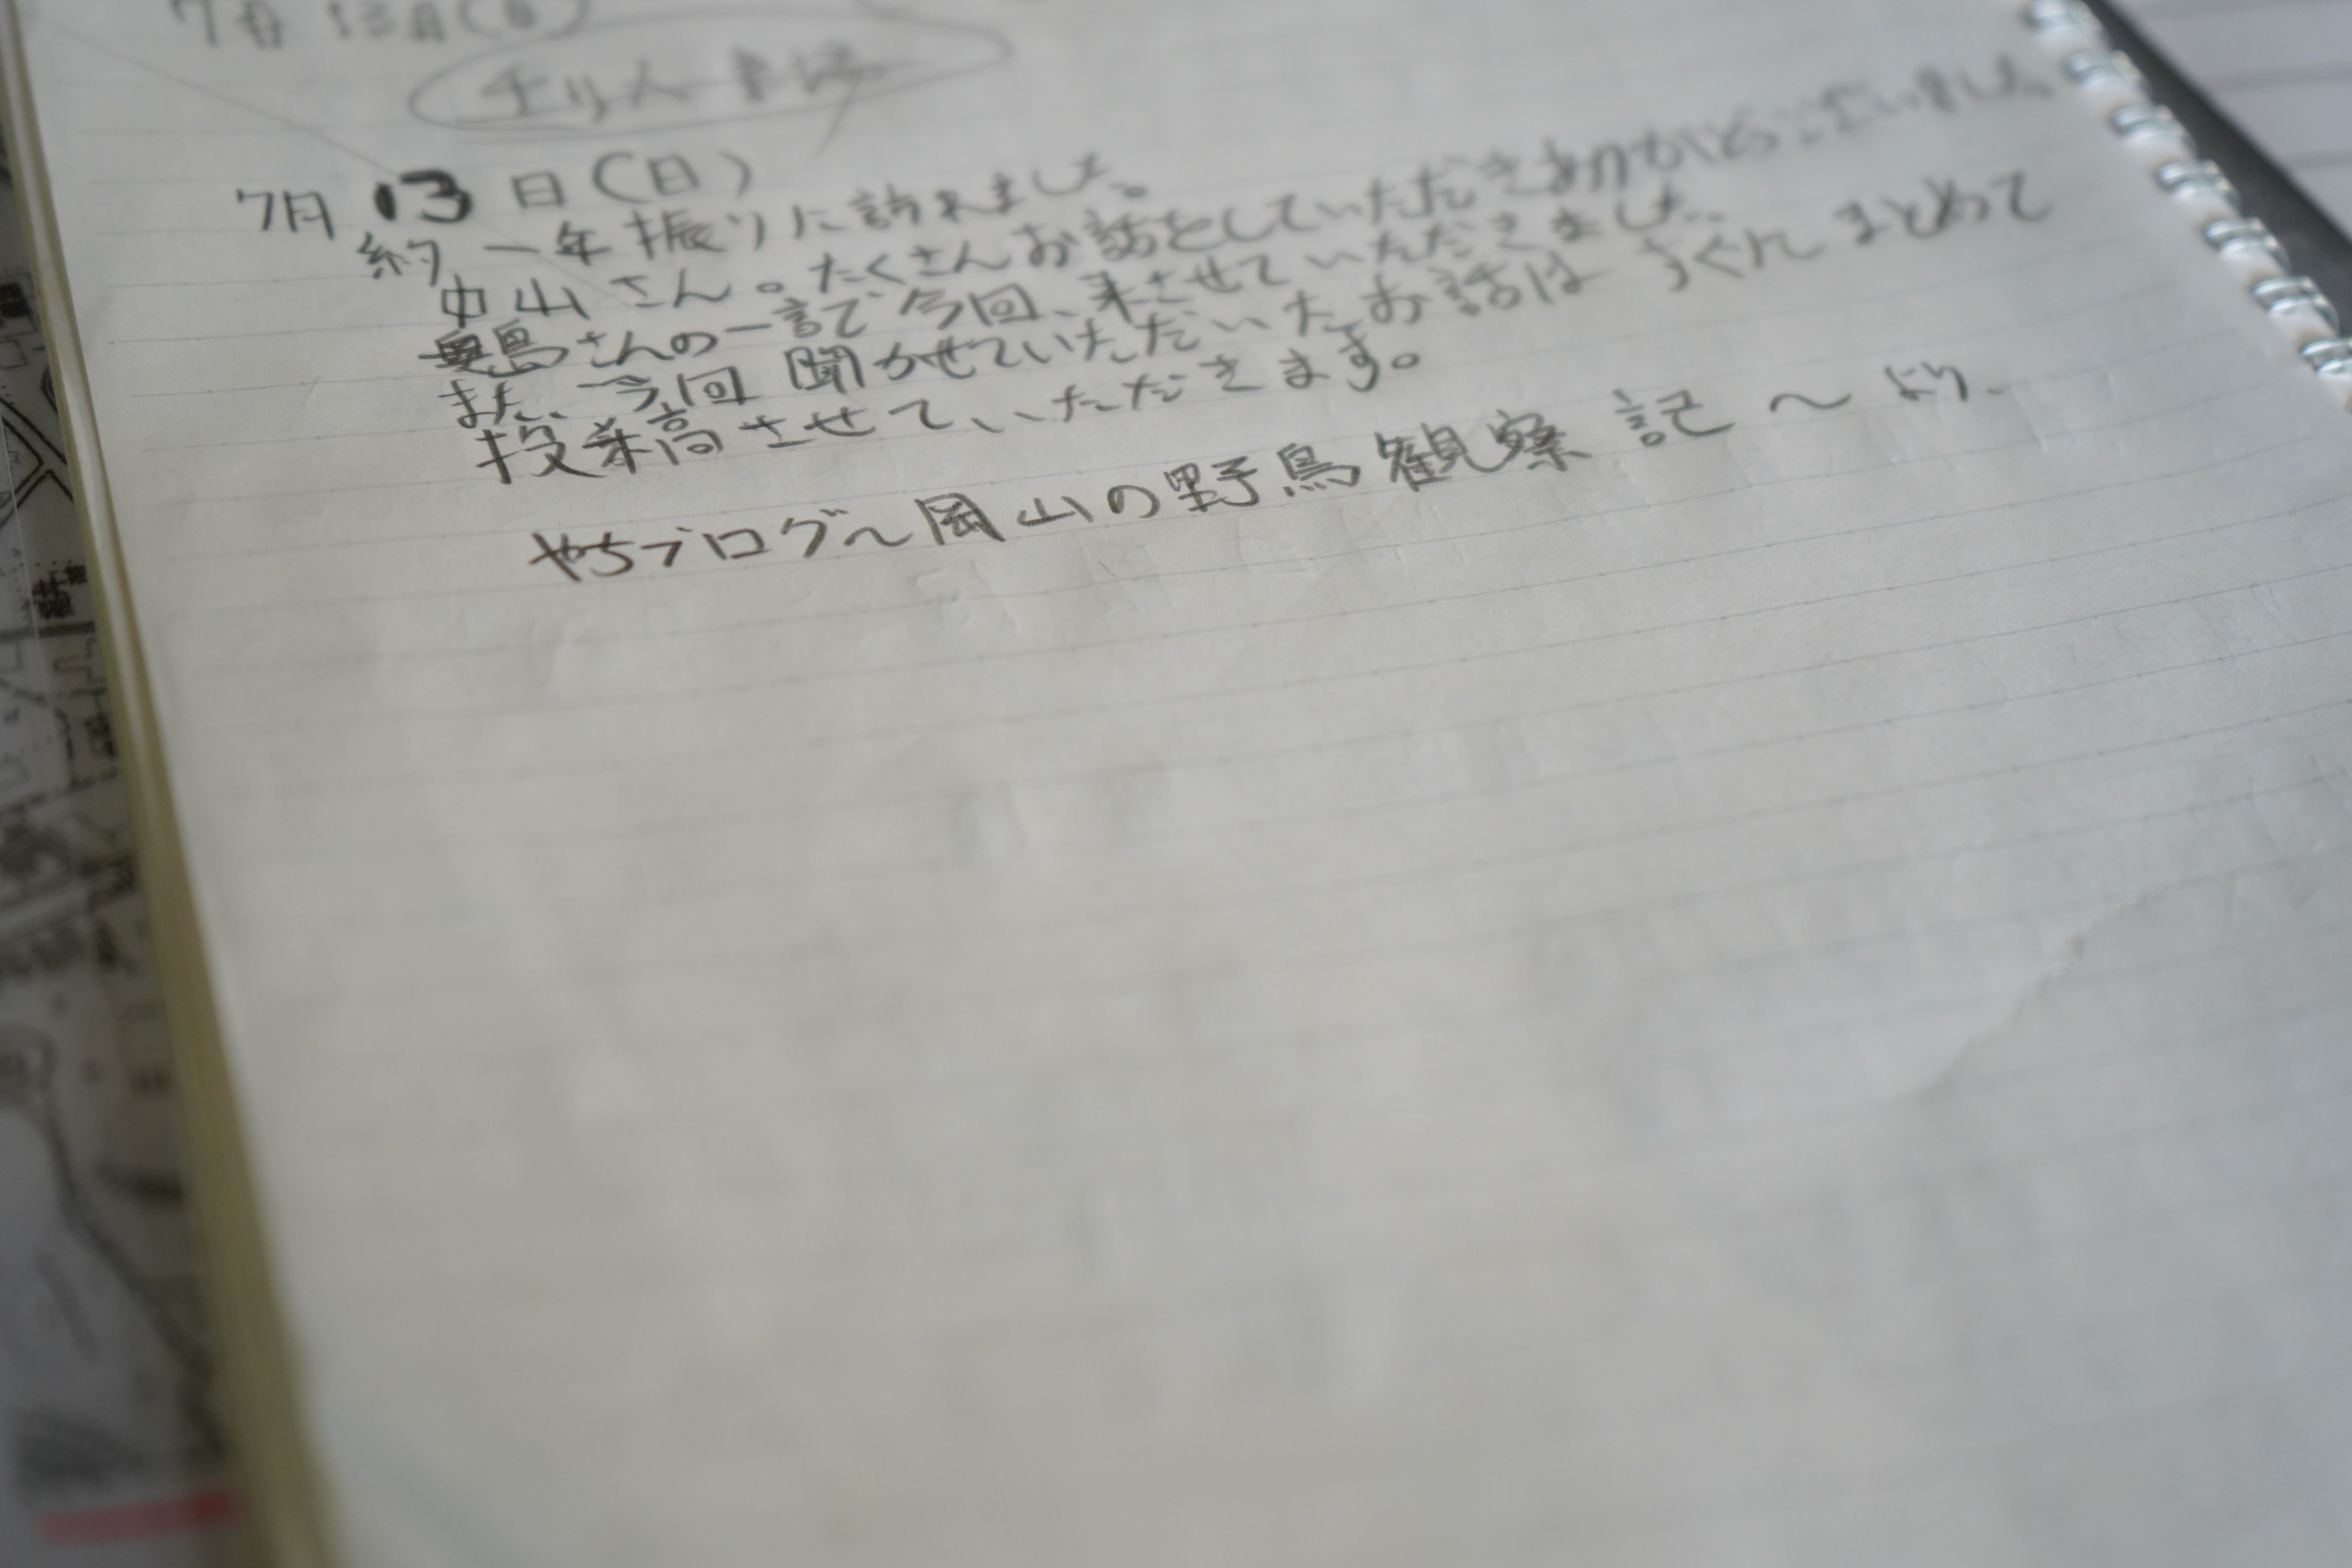 7月 13日(日)
7月 13 日(日)
約 一年振りに訪れました。
中山さん。たくさんお話をしていただきありがとうございました。
奥島さんの一言で今回、来させていただきました。
また、今回 聞かせていただいたお話は まとめて
投稿させていただきます。
やちブログ〜岡山の野鳥観察記〜より